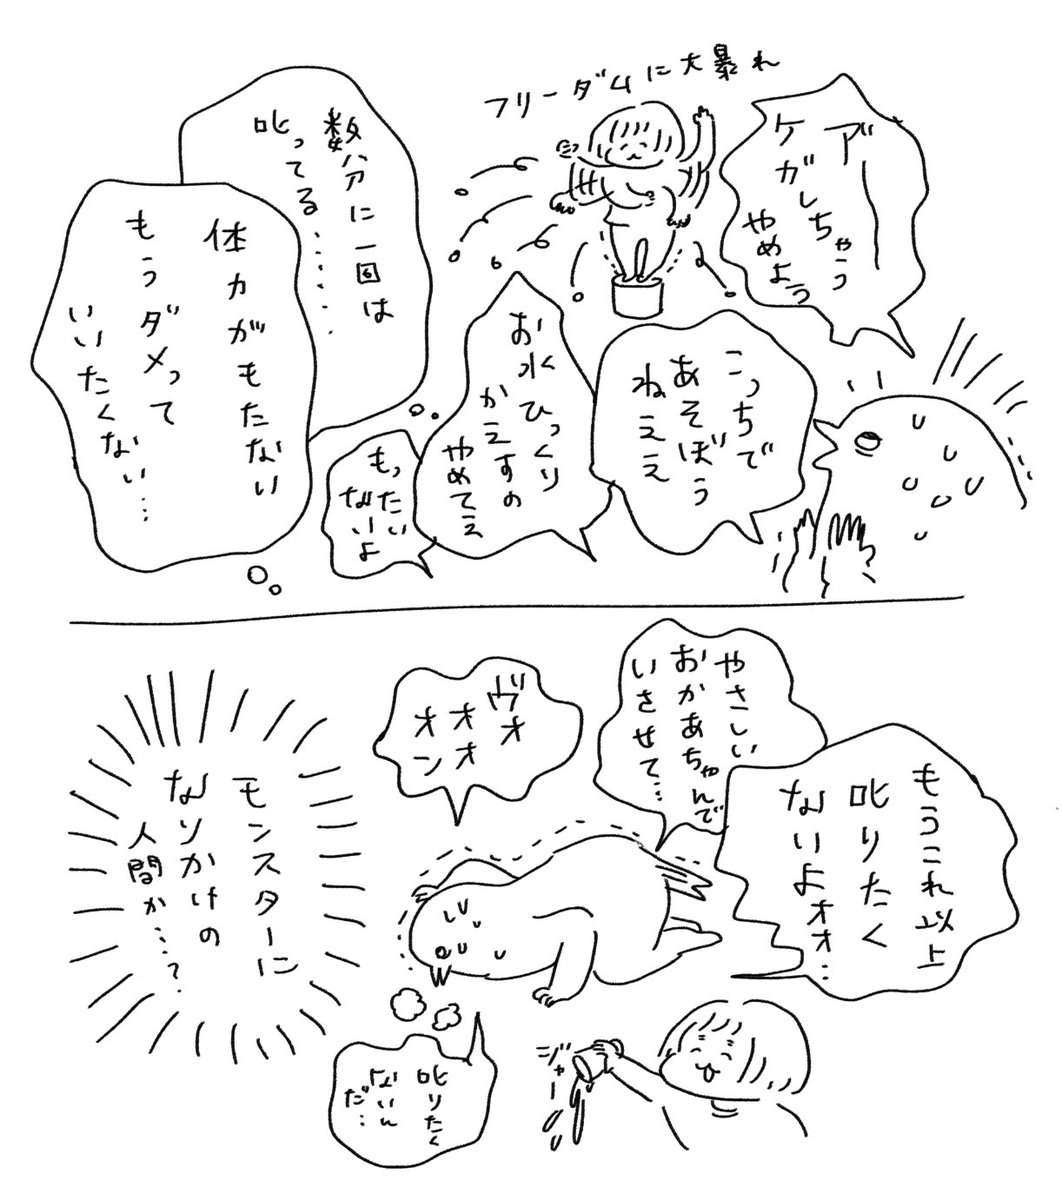 フリーダムに大暴れ
ア゛ーー
ケガしちゃう
やめよう
こっちで
あそぼう
ねええ
お水ひっくり
かえすの
やめてえ
もったい
ないよ
数分に一回は
叱ってる……
体力がもたない
もうダメって
いいたくない…
もうこれ以上
叱りたく
ないよォォ…
やさしい
おかあちゃんで
いさせて…
ヴォ
オオ
オン
叱りたく
ないん
だ…
ジャー
モンスターに
なりかけの
人間か…?